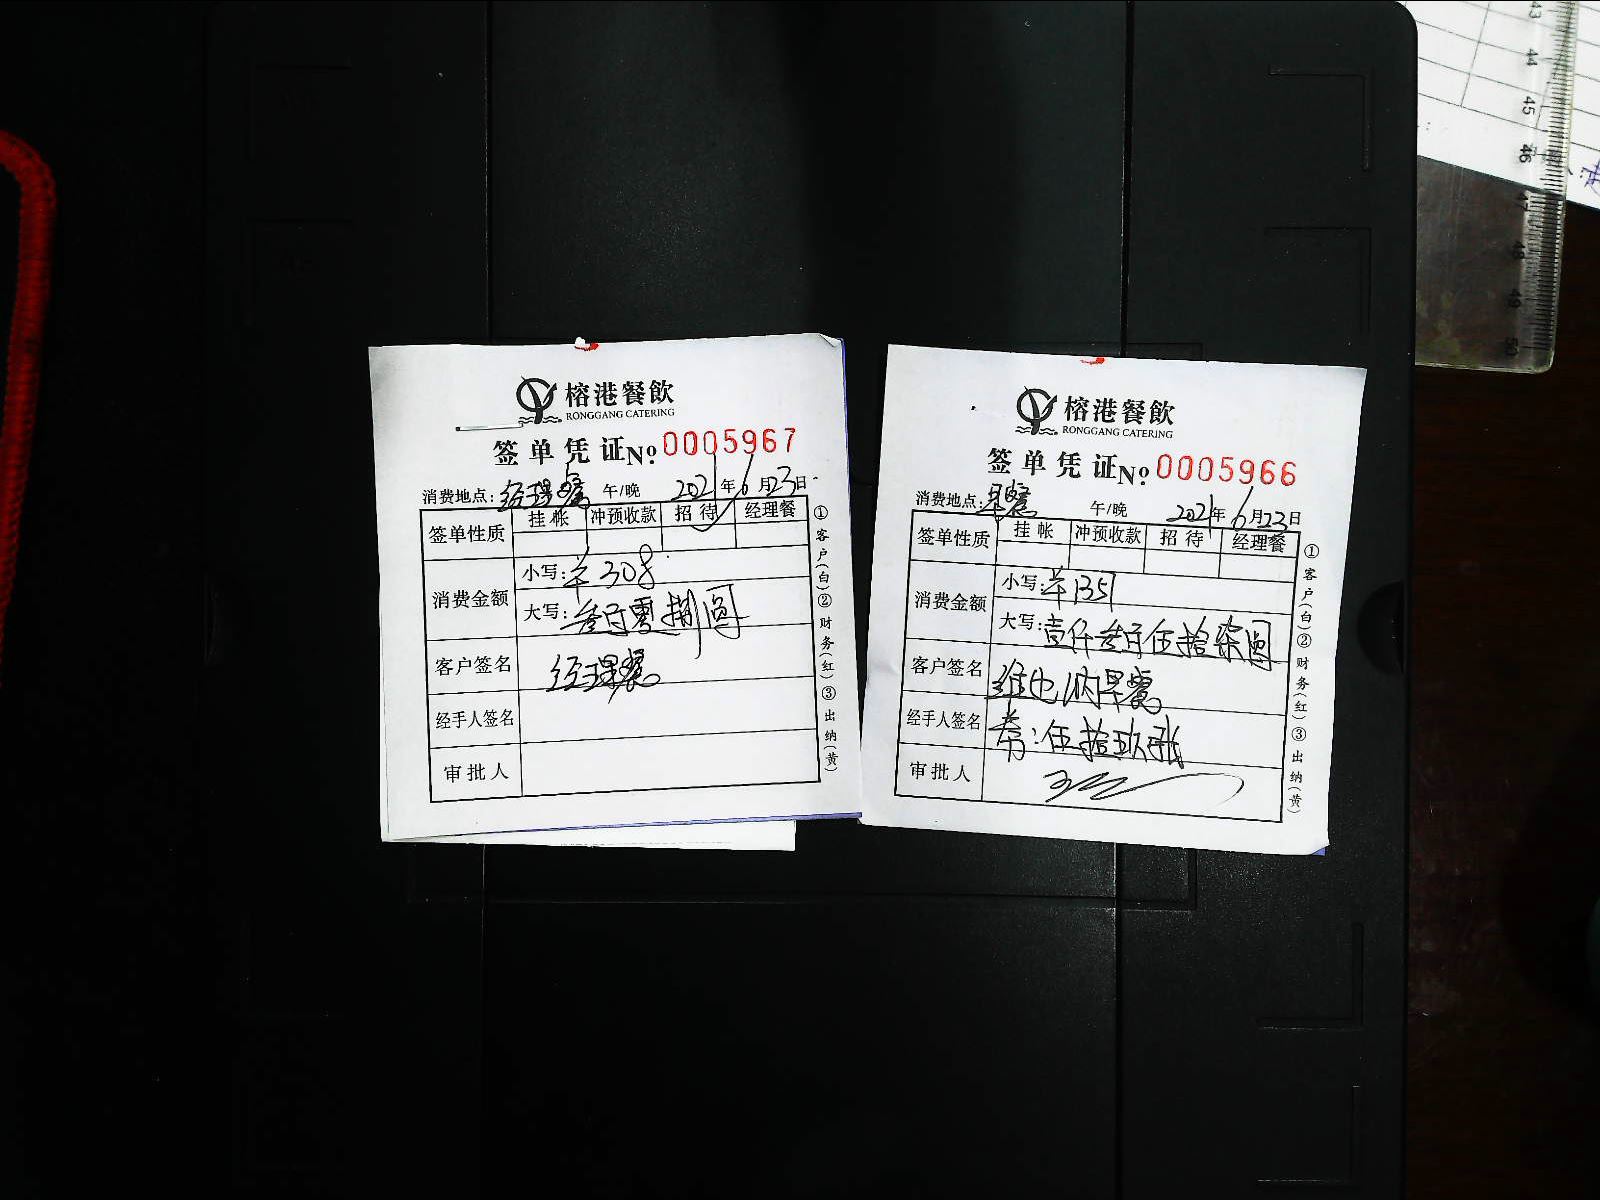 榕港餐飲
RONGGANG CATERING
签单凭证 No. 0005967
消费地点: 经理餐 午/晚 2021年6月23日
签单性质 挂帐 冲预收款 招待 经理餐
消费金额 小写: 308
大写: 叁百零捌圆
客户签名 经理餐
经手人签名
审批人
①客户(白)②财务(红)③出纳(黄)
榕港餐飲
RONGGANG CATERING
签单凭证 No. 0005966
消费地点: 早餐 午/晚 2021年6月23日
签单性质 挂帐 冲预收款 招待 经理餐
消费金额 小写: 1357
大写: 壹仟叁百伍拾柒圆
客户签名 维也纳早餐
经手人签名 券: 伍拾玖张
审批人
①客户(白)②财务(红)③出纳(黄)
43
44
45
46
47
48
49
50